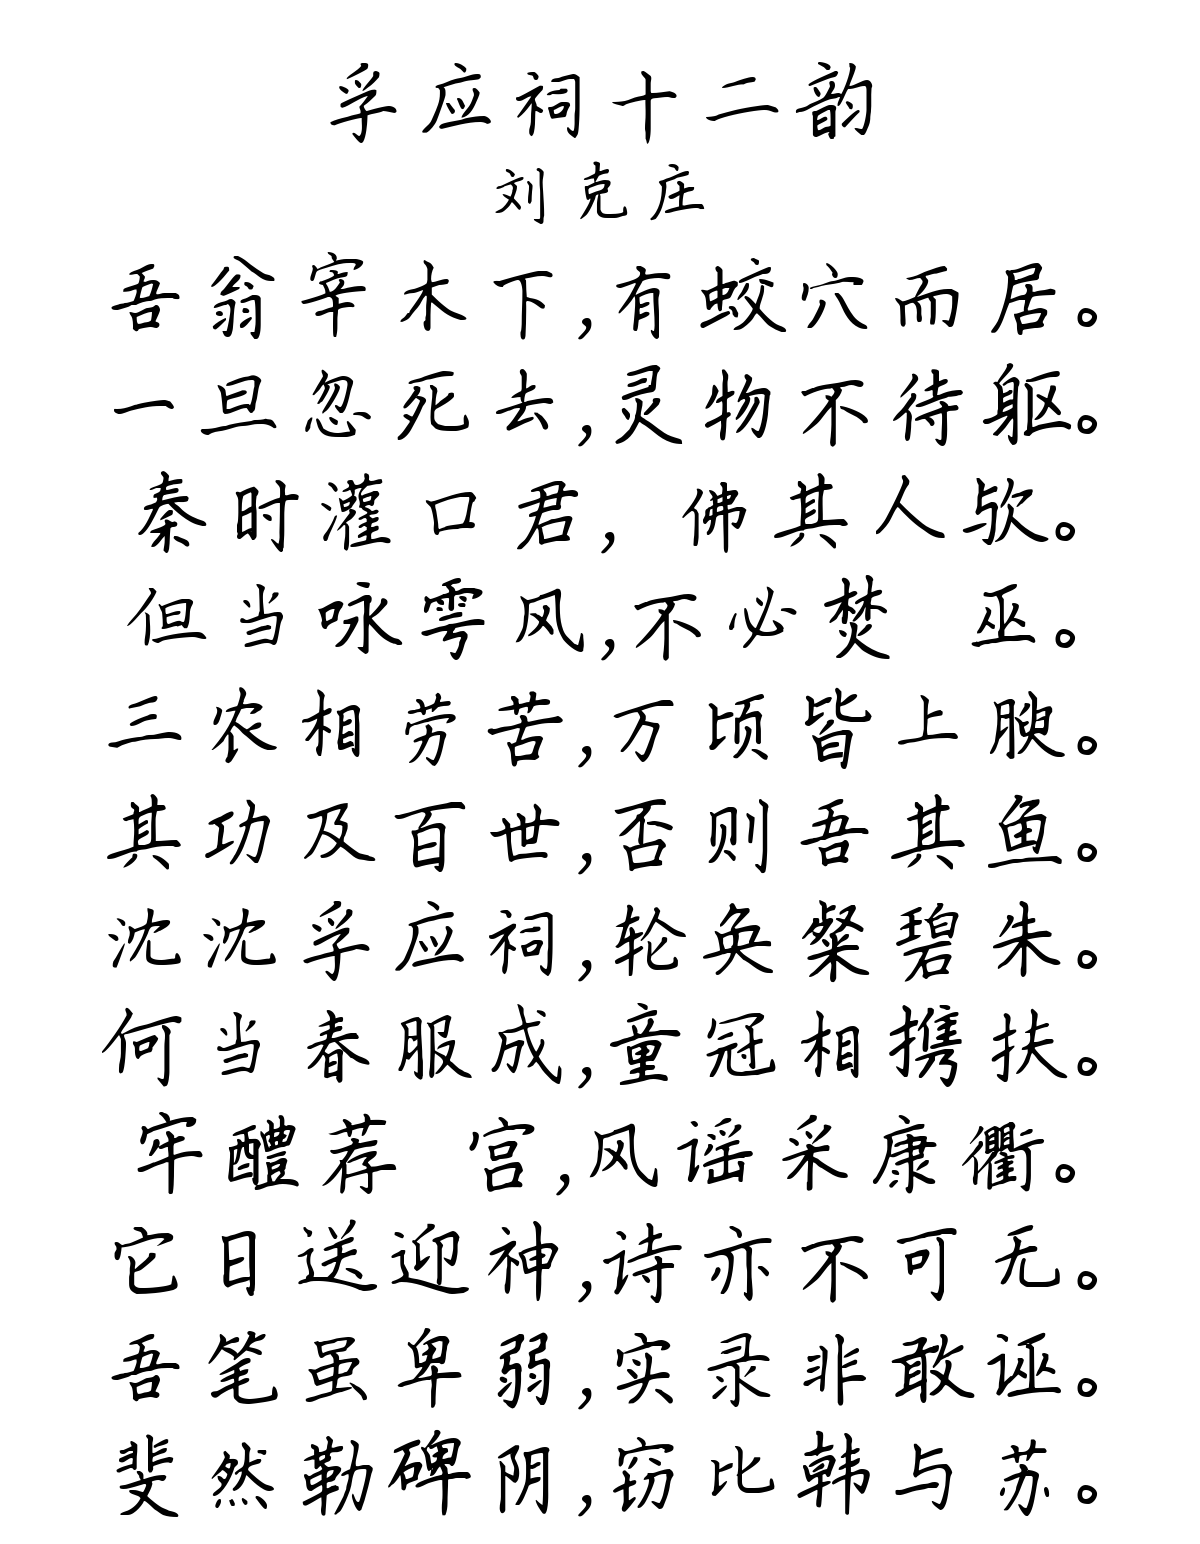 孚应祠十二韵
刘克庄
吾翁宰木下,有蛟穴而居。
一旦忽死去,灵物不待躯。
秦时灌口君, 佛其人欤。
但当咏雩风,不必焚 巫。
三农相劳苦,万顷皆上腴。
其功及百世,否则吾其鱼。
沈沈孚应祠,轮奂粲碧朱。
何当春服成,童冠相携扶。
牢醴荐 宫,风谣采康衢。
它日送迎神,诗亦不可无。
吾笔虽卑弱,实录非敢诬。
斐然勒碑阴,窃比韩与苏。